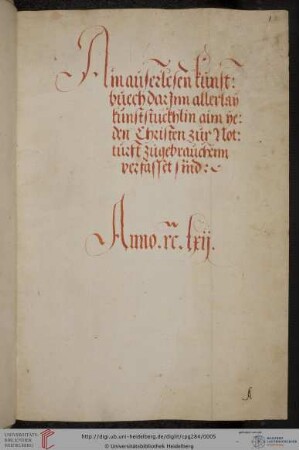 Ain auserlesen kunst=
buech dar Jnn allerlay
kunststuckhlin aim ye=
den Christen zur Not=
turft zugebrauchenn
verfasset sind:
Anno. rc. lxij.
UNIVERSITÄTS-
BIBLIOTHEK
HEIDELBERG
http://digi.ub.uni-heidelberg.de/diglit/cpg284/0005
Universitätsbibliothek Heidelberg